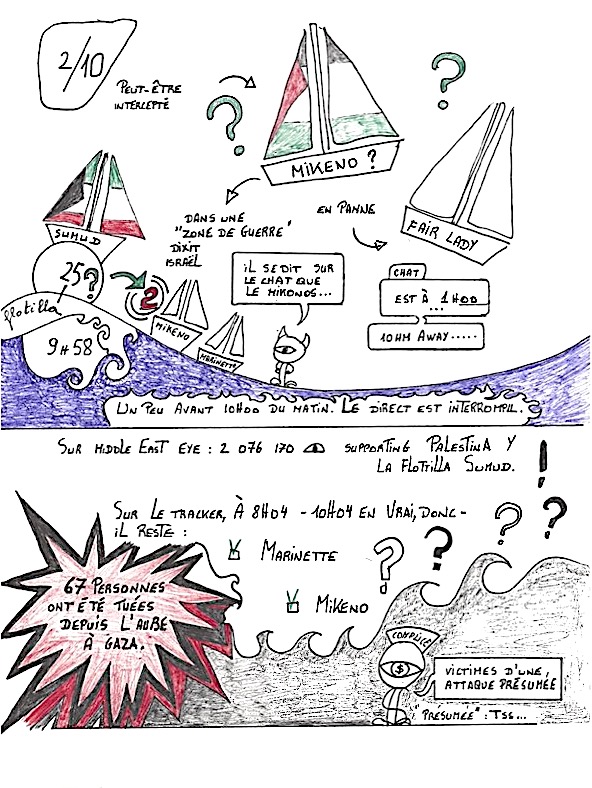 2/10
PEUT-ÊTRE
INTERCEPTÉ
?
?
MIKENO ?
DANS UNE
"ZONE DE GUERRE"
DIXIT
ISRAËL
EN PANNE
FAIR LADY
SUMUD
25?
FLOTILLA
9H58
2
MIKENO
MARINETTE
IL SE DIT SUR
LE CHAT QUE
LE MIKONOS...
CHAT
EST À 1H00
...
10HM AWAY.....
UN PEU AVANT 10H00 DU MATIN. LE DIRECT EST INTERROMPU.
SUR MIDDLE EAST EYE : 2 076 170 SUPPORTING PALESTINA Y
LA FLOTILLA SUMUD.
!
SUR LE TRACKER, À 8H04 - 10H04 EN VRAI, DONC -
IL RESTE :
MARINETTE
MIKENO
? ? ? ?
67 PERSONNES
ONT ÉTÉ TUÉES
DEPUIS L'AUBE
À GAZA.
COMPLICE
$
VICTIMES D'UNE
ATTAQUE PRÉSUMÉE
"PRÉSUMÉE" : TSS...